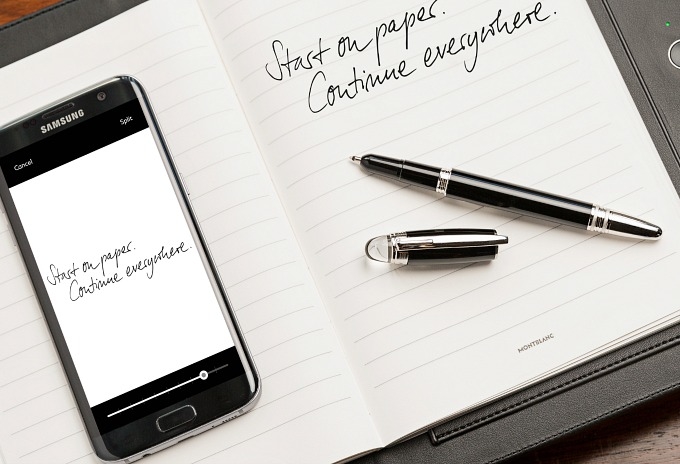 Start on paper.
Continue everywhere.
SAMSUNG
Cancel Split
Start on paper.
Continue everywhere.
MONTBLANC